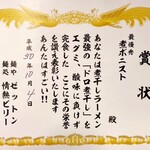 賞状
最優秀
煮ボニスト
殿
あなたは煮干しラーメン
最強の「ドロ煮干し」を
エグミ、酸味に負けず
完食した、ここにその栄誉
を讃え表彰いたします
あんたはすごい!!!
平成30年10月4日
麺処 情熱ビリー
ゼットン